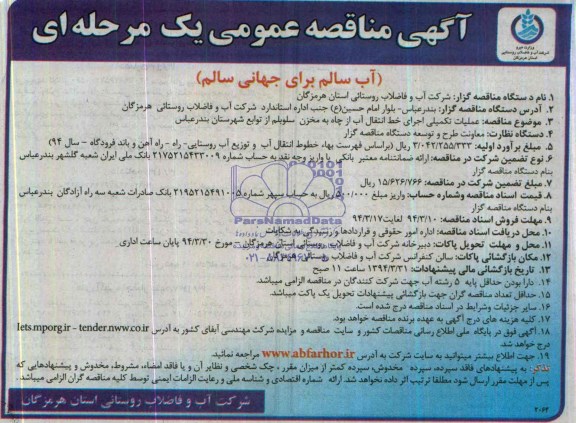 آگهی مناقصه عمومی یک مرحله ای
وزارت نیرو
شرکت آب و فاضلاب روستائی
استان هرمزگان
(آب سالم برای جهانی سالم)
۱. نام دستگاه مناقصه گزار: شرکت آب و فاضلاب روستائی استان هرمزگان
۲. آدرس دستگاه مناقصه گزار: بندرعباس- بلوار امام حسین(ع) جنب اداره استاندارد شرکت آب و فاضلاب روستائی هرمزگان
۳. موضوع مناقصه: عملیات تکمیلی اجرای خط انتقال آب از چاه به مخزن سلوبلم از توابع شهرستان بندرعباس
۴. دستگاه نظارت: معاونت طرح و توسعه دستگاه مناقصه گزار
۵. مبلغ برآورد اولیه: ۳/۰۴۲/۲۵۵/۳۳۳ ریال (براساس فهرست بهاء خطوط انتقال آب و توزیع آب روستایی- راه - راه آهن و باند فرودگاه - سال ۹۴)
۶. نوع تضمین شرکت در مناقصه: ارائه ضمانتنامه معتبر بانکی یا واریز وجه نقد به حساب شماره ۲۱۷۵۲۱۵۴۳۳۰۰۹ بانک ملی ایران شعبه گلشهر بندرعباس
بنام دستگاه مناقصه گزار
۷. مبلغ تضمین شرکت در مناقصه: ۱۵/۶۲۶/۷۶۶ ریال
۸. قیمت اسناد مناقصه وشماره حساب: واریز مبلغ ۵۰۰/۰۰۰ ریال به حساب سپهر شماره ۲۱۹۵۲۱۵۴۹۱۰۰۵ بانک صادرات شعبه سه راه آزادگان بندرعباس
بنام دستگاه مناقصه گزار
۹. مهلت فروش اسناد مناقصه: ۹۴/۳/۱۰ لغایت ۹۴/۳/۱۷
۱۰. محل دریافت اسناد مناقصه: اداره امور حقوقی و قراردادها و رسیدگی به شکایات
۱۱. محل و مهلت تحویل پاکات: دبیرخانه شرکت آب و فاضلاب روستایی استان هرمزگان - مورخ ۹۴/۳/۳۰ پایان ساعت اداری
۱۲. مکان بازگشائی پاکات: سالن کنفرانس شرکت آب و فاضلاب روستائی هرمزگان
۱۳. تاریخ بازگشائی مالی پیشنهادات: ۱۳۹۴/۳/۳۱ ساعت ۱۱ صبح
۱۴. دارا بودن حداقل پایه ۵ رشته آب جهت شرکت کنندگان در مناقصه الزامی میباشد.
۱۵. حداقل تعداد مناقصه گران جهت بازگشائی پیشنهادات تحویل یک پاکت میباشد.
۱۶. سایر جزئیات وشرایط در اسناد مناقصه درج شده است.
۱۷. کلیه هزینه های درج آگهی به عهده برنده مناقصه خواهد بود.
۱۸. آگهی فوق در پایگاه ملی اطلاع رسانی مناقصات کشور و سایت مناقصه و مزایده شرکت مهندسی آبفای کشور به آدرس iets.mporg.ir - tender.nww.co.ir
درج خواهد شد.
۱۹. جهت اطلاع بیشتر میتوانید به سایت شرکت به آدرس www.abfarhor.ir مراجعه نمائید.
تذکر: به پیشنهادهای فاقد سپرده، سپرده مخدوش، سپرده کمتر از میزان مقرر، چک شخصی و نظایر آن و یا فاقد امضاء، مشروط، مخدوش و پیشنهادهایی که
پس از مهلت مقرر ارسال شود مطلقا ترتیب اثر داده نخواهد شد. ارائه شماره اقتصادی و شناسه ملی و رعایت الزامات ایمنی توسط کلیه مناقصه گران الزامی میباشد.
شرکت آب و فاضلاب روستائی استان هرمزگان
۲۰۶۲
ParsNamadData